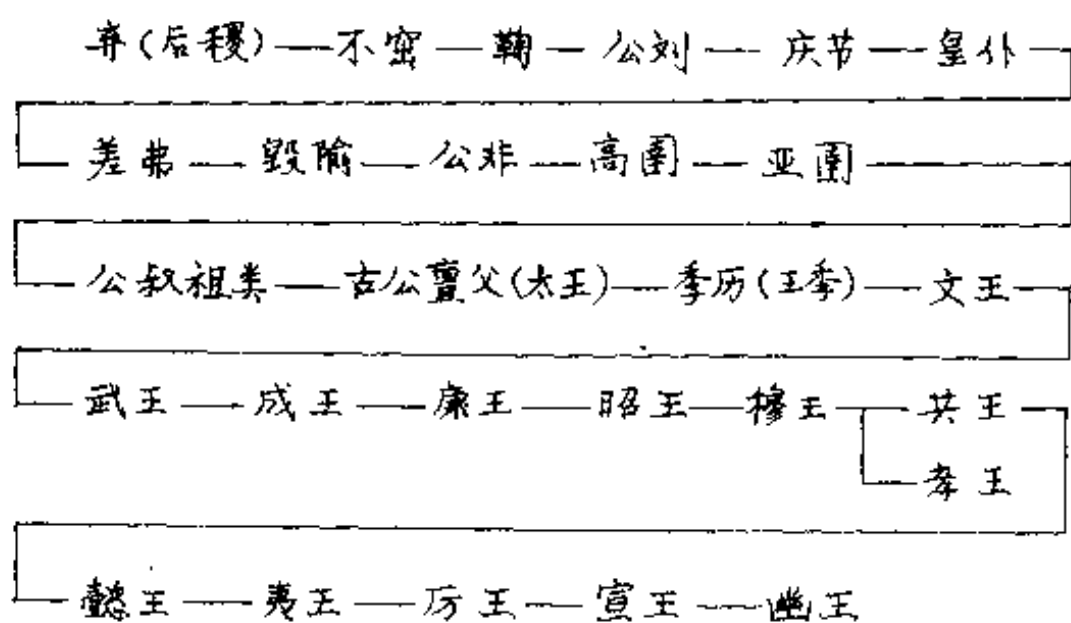 弃(后稷)—不窋—鞠—公刘—庆节—皇仆
差弗—毁隃—公非—高圉—亚圉
公叔祖类—古公亶父(太王)—季历(王季)—文王
武王—成王—康王—昭王—穆王—共王
孝王
懿王—夷王—厉王—宣王—幽王